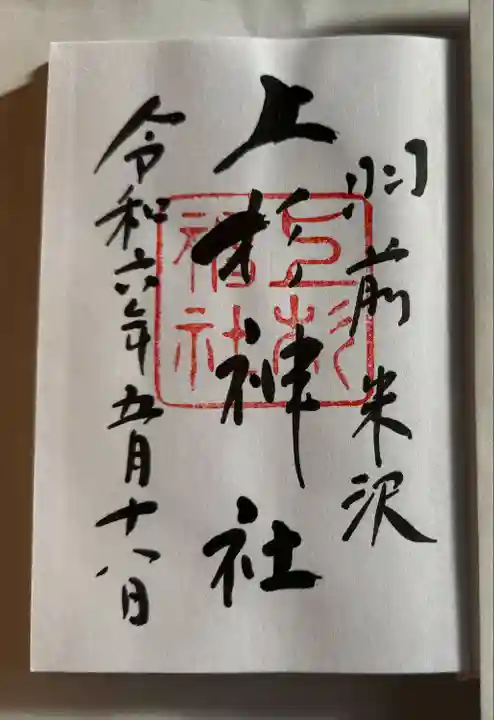 羽前米沢
上杉神社
令和六年五月十八日
上杉神社